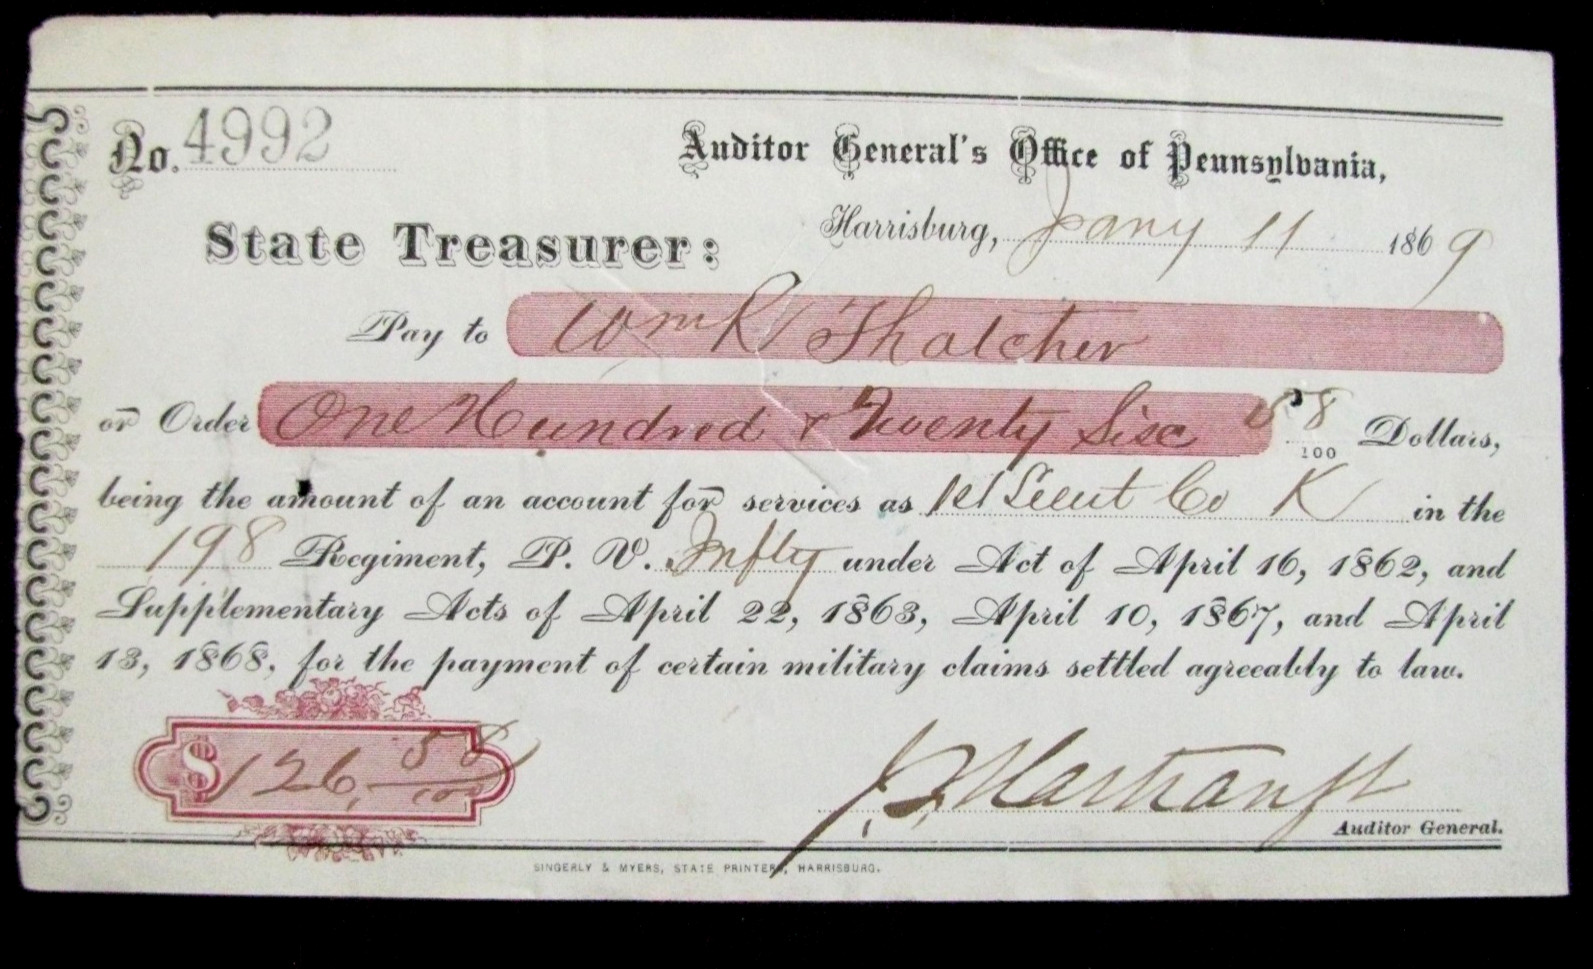 No. 4992
Auditor General's Office of Pennsylvania,
Harrisburg, Jany 11 1869
State Treasurer:
Pay to Wm R Thatcher
or Order One Hundred & Twenty Six 58/100 Dollars,
being the amount of an account for services as 1st Lieut Co K in the
198 Regiment, P. V. Inftry under Act of April 16, 1862, and
Supplementary Acts of April 22, 1863, April 10, 1867, and April
13, 1868, for the payment of certain military claims settled agreeably to law.
$ 126, 58/100
J. F. Hartranft
Auditor General.
SINGERLY & MYERS, STATE PRINTERS, HARRISBURG.